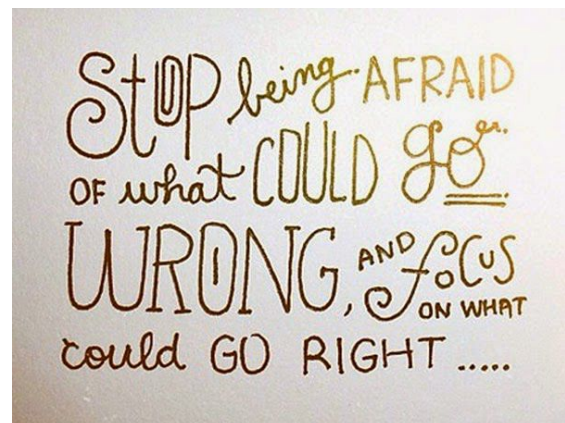 Stop being AFRAID
OF what COULD go er.
WRONG, AND focus
ON WHAT
could GO RIGHT .....